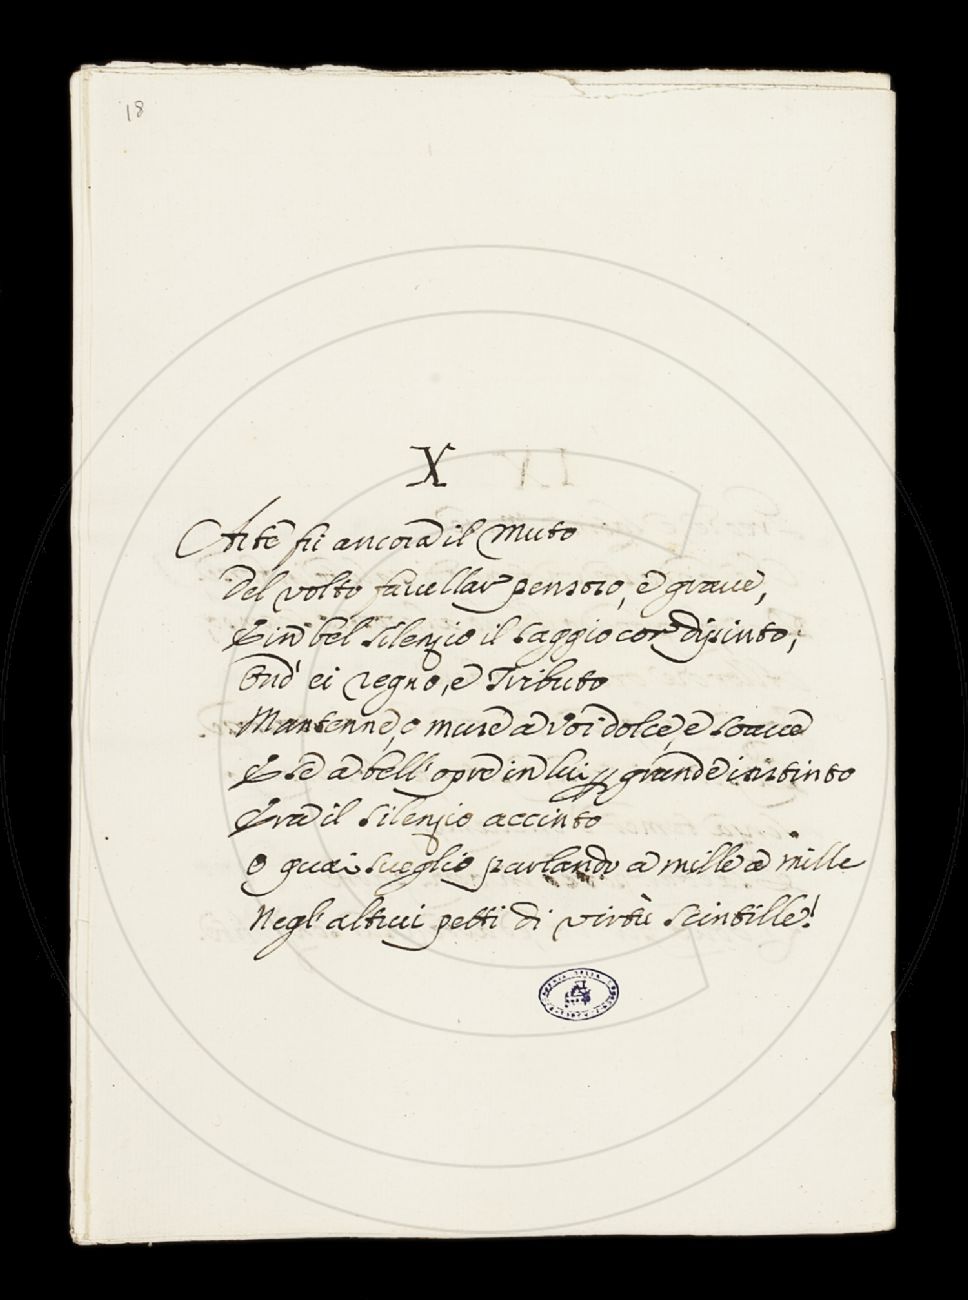 18
X
Arte fù ancora il Muto
Del volto favellar pensoso, e grave,
E in bel silenzio il saggio cor dipinto;
Ond' ei regno, e Tributo
Mantenne, o muse a voi dolce, e soave
E se a bell' opre in lui grande instinto
Era il silenzio accinto
o quai sveglio parlando a mille a mille
Negl' altrui petti di virtù scintille!